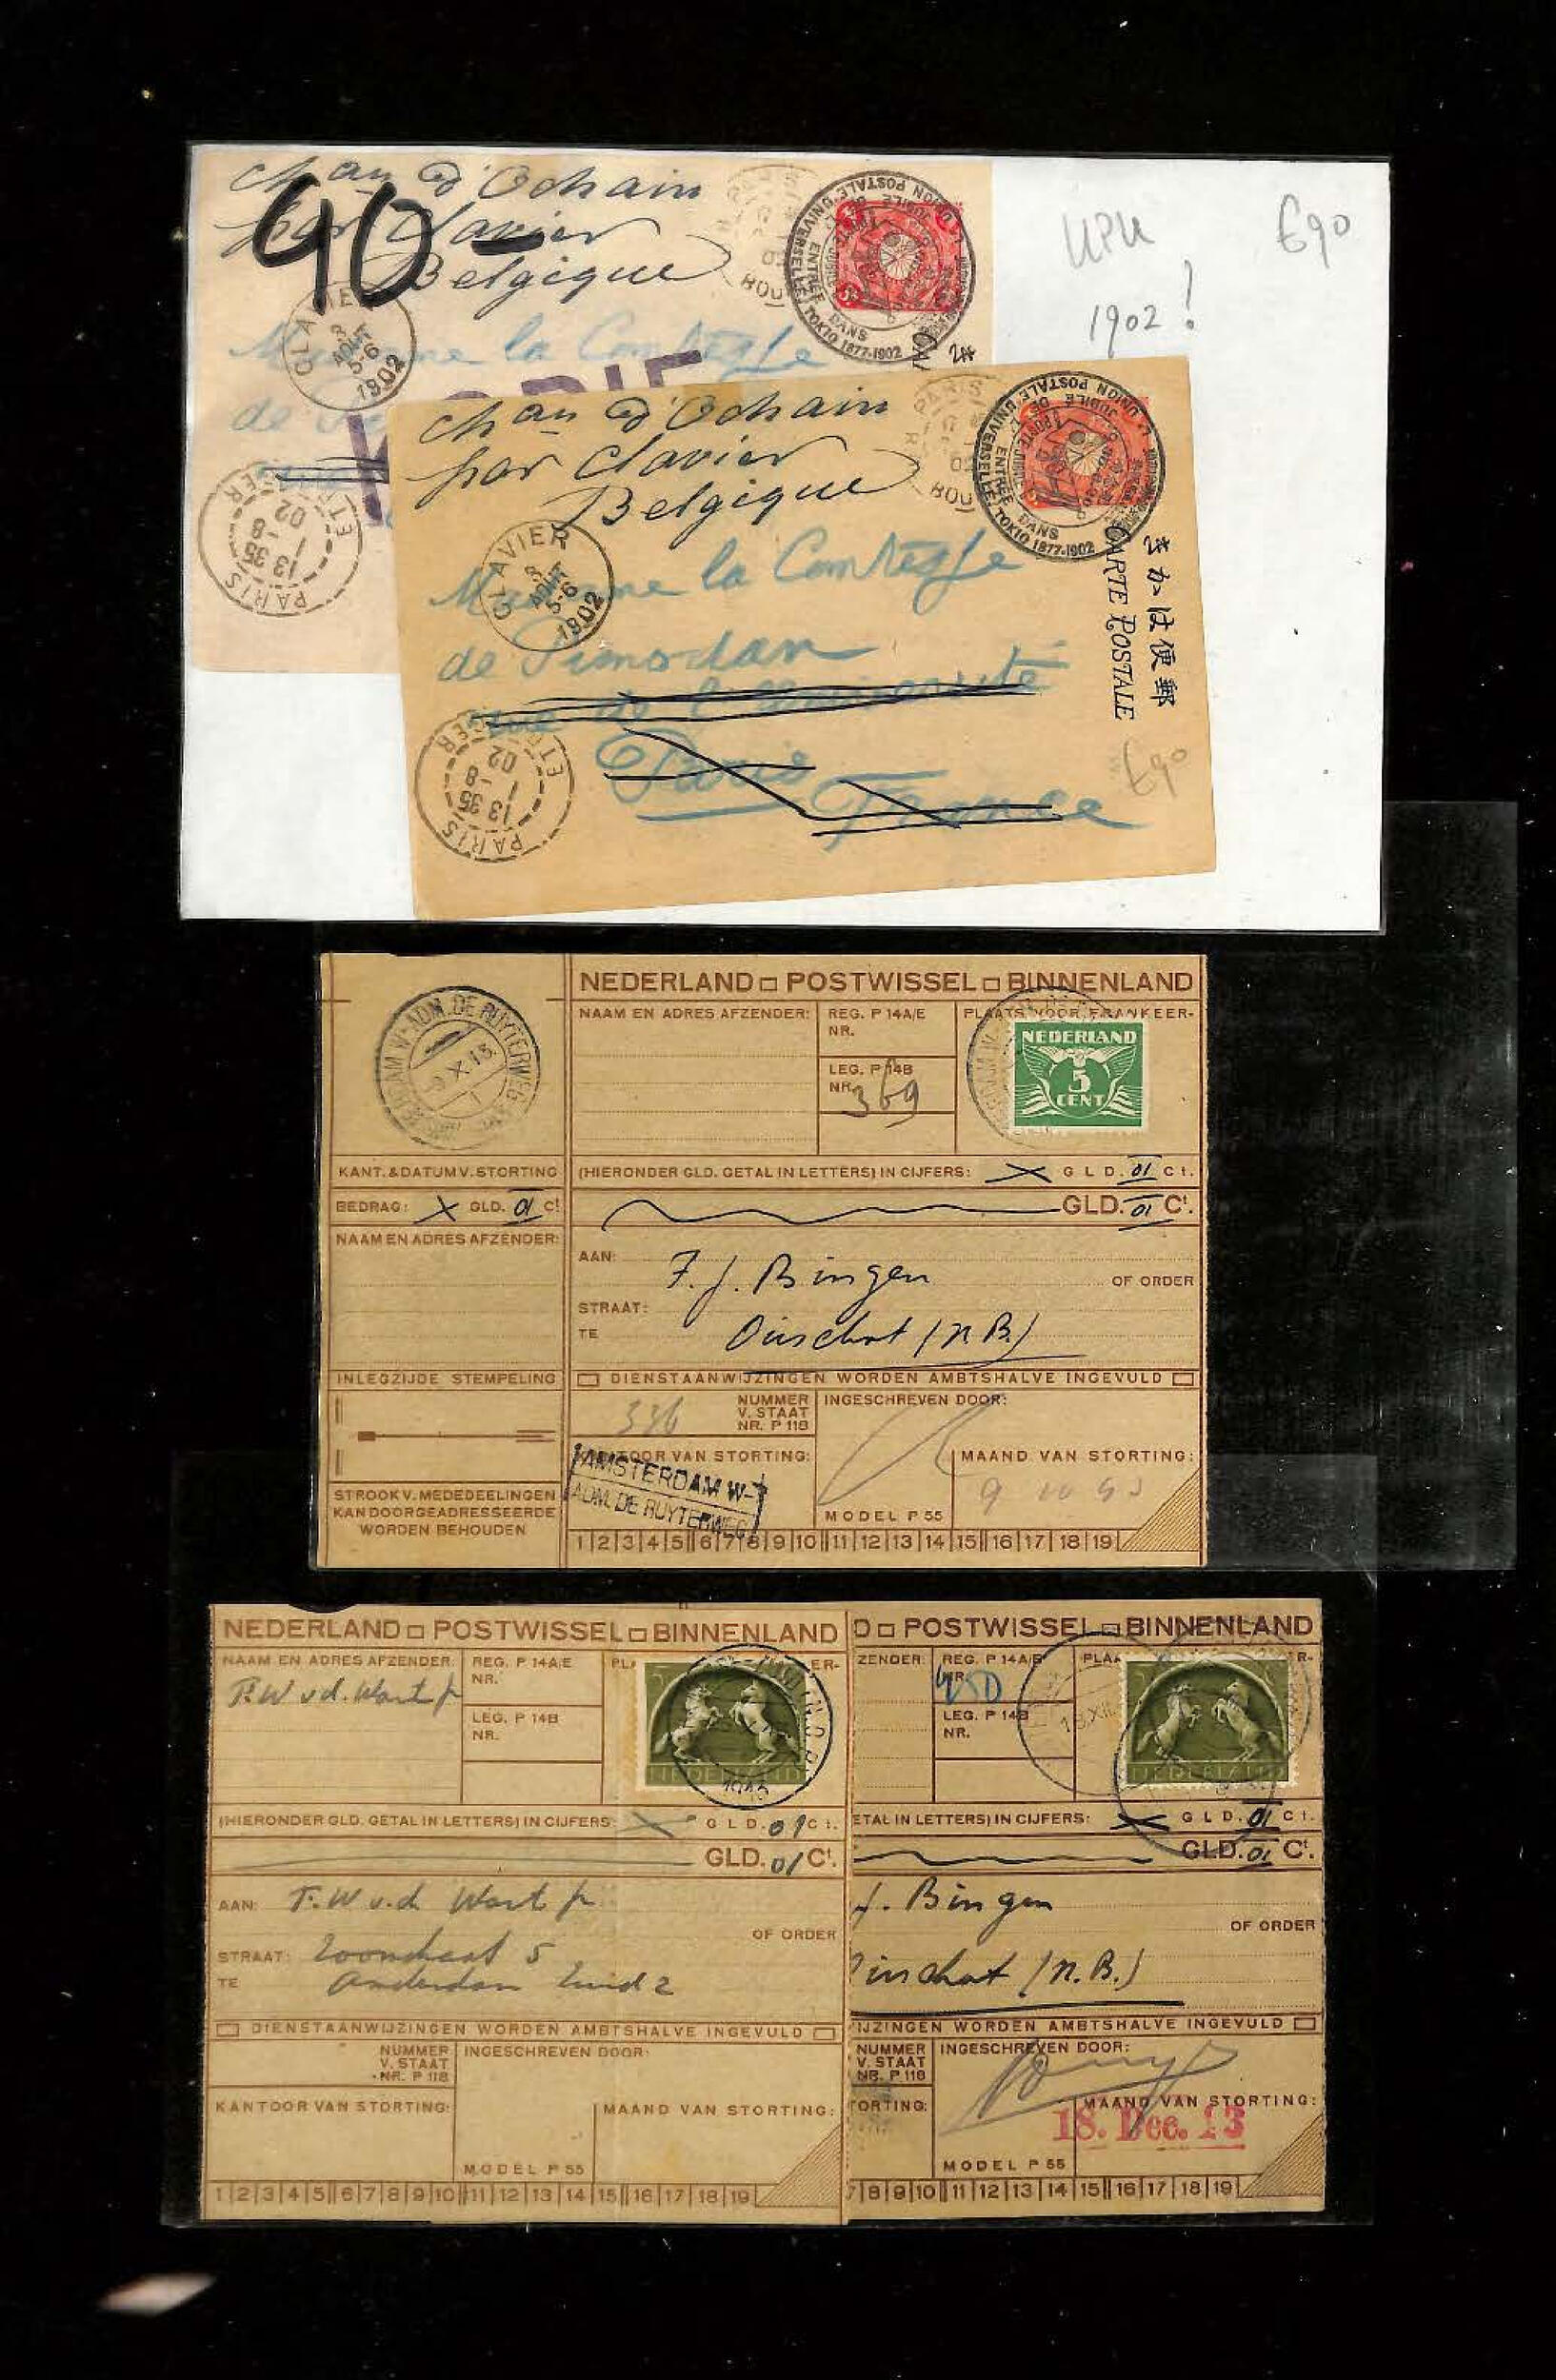 chau d'Ochain
par Clavier
Belgique
90-
CLAVIER
3
AOUT
5-6
1902
Madame la Comtesse
de
PARIS
13 35
1 - 8
02
ETRANGER
UNION POSTALE UNIVERSELLE
JUBILÉ DE
ENTRÉE DANS
TOKIO 1877-1902
UPU
1902!
€90
chau d'Ochain
par Clavier
Belgique
CLAVIER
3
AOUT
5-6
1902
Madame la Comtesse
de Pimodan
rue de l'Université
Paris
France
PARIS
02
UNION POSTALE UNIVERSELLE
JUBILÉ DE
ENTRÉE DANS
TOKIO 1877-1902
きかは便郵
CARTE POSTALE
€90
PARIS
13 35
1 - 8
02
ETRANGER
NEDERLAND □ POSTWISSEL □ BINNENLAND
NAAM EN ADRES AFZENDER:
REG. P 14A/E
NR.
PLAATS VOOR FRANKEER-
LEG. P 14B
NR.
369
NEDERLAND
5
CENT
ADM. DE RUYTERWEG
KANT. & DATUM V. STORTING
(HIERONDER GLD. GETAL IN LETTERS) IN CIJFERS: X GLD. 01 Ct.
BEDRAG: X GLD. 01 Ct
GLD. 01 Ct.
NAAM EN ADRES AFZENDER:
AAN: F. J. Bingen
OF ORDER
STRAAT:
TE Oirschot (N.B.)
INLEGZIJDE STEMPELING
□ DIENSTAANWIJZINGEN WORDEN AMBTSHALVE INGEVULD □
336
NUMMER
V. STAAT
NR. P 118
INGESCHREVEN DOOR:
KANTOOR VAN STORTING:
MAAND VAN STORTING:
AMSTERDAM W-
ADM. DE RUYTERWEG
STROOK V. MEDEDEELINGEN
KAN DOOR GEADRESSEERDE
WORDEN BEHOUDEN
MODEL P 55
1|2|3|4|5||6|7|8|9|10||11|12|13|14|15||16|17|18|19
NEDERLAND □ POSTWISSEL □ BINNENLAND
NAAM EN ADRES AFZENDER:
REG. P 14A/E
NR.
LEG. P 14B
NR.
NEDERLAND
1945
(HIERONDER GLD. GETAL IN LETTERS) IN CIJFERS: X GLD. 01 Ct.
GLD. 01 Ct.
AAN: F. W v.d. Wart jr
OF ORDER
STRAAT: 5
TE Amsterdam Zuid 2
□ DIENSTAANWIJZINGEN WORDEN AMBTSHALVE INGEVULD □
NUMMER
V. STAAT
NR. P 118
INGESCHREVEN DOOR:
KANTOOR VAN STORTING:
MAAND VAN STORTING:
MODEL P 55
1|2|3|4|5||6|7|8|9|10||11|12|13|14|15||16|17|18|19
D □ POSTWISSEL □ BINNENLAND
ZENDER:
REG. P 14A/E
NR.
LEG. P 14B
NR.
NEDERLAND
ETAL IN LETTERS) IN CIJFERS: X GLD. 01 Ct.
GLD. 01 Ct.
J. Bingen
OF ORDER
irschot (N.B.)
IJZINGEN WORDEN AMBTSHALVE INGEVULD □
NUMMER
V. STAAT
NR. P 118
INGESCHREVEN DOOR:
TORTING:
MAAND VAN STORTING:
MODEL P 55
7|8|9|10||11|12|13|14|15||16|17|18|19